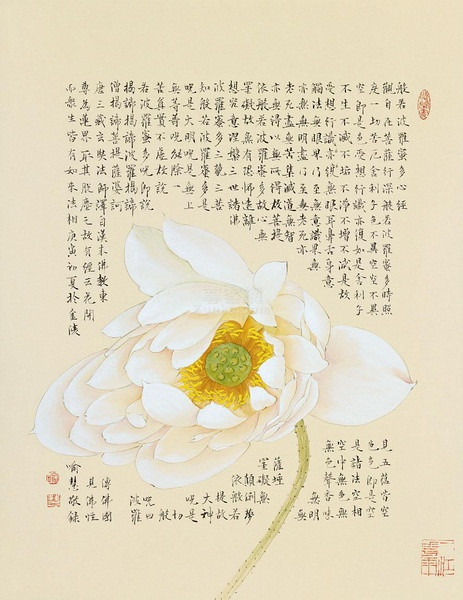 般若波羅蜜多心經
觀自在菩薩行深般若波羅蜜多時照
見五蘊皆空
度一切苦厄舍利子色不異空空不異
色色即是空
空即是色受想行識亦復如是舍利子
是諸法空相
不生不滅不垢不淨不增不減是故
空中無色無
受想行識亦復無眼耳鼻舌身意
無色聲香味
觸法無眼界乃至無意識界無
無明
亦無無明盡乃至無老死亦
無
老死盡無苦集滅道無智
亦無得以無所得故菩提
薩埵
依般若波羅蜜多故心無
罣礙無
罣礙故無有恐怖遠離
顛倒夢
想究竟涅槃三世諸佛
依般若
波羅蜜多三藐三菩
提故
知般若波羅蜜多是
大神
咒是大明咒是無上
咒是
無等等咒能除一
切
苦真實不虛故說
般
若波羅蜜多咒即說
咒曰
揭諦揭諦波羅揭諦
波羅
僧揭諦菩提薩婆訶
唐三藏玄奘法師譯自漢末佛教東
傳佛國
尊為蓮界取其脫塵之故有經云花開
見佛性
而眾生皆有如來法相庚寅初夏於金陵
喻慧敬錄